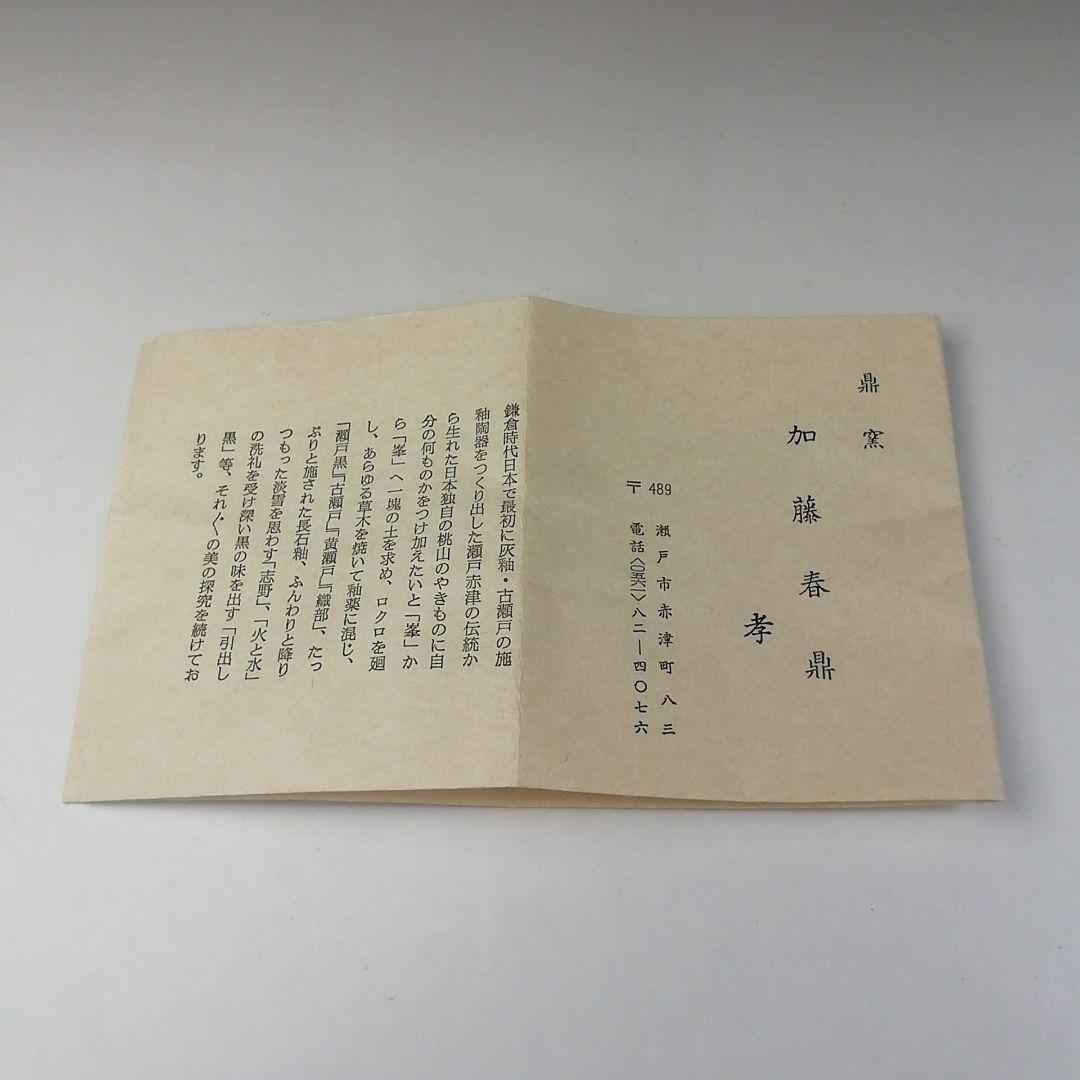 鼎窯
加藤春鼎
孝
〒489
瀬戸市赤津町八三
電話〈〇五六一〉八二―四〇七六
鎌倉時代日本で最初に灰釉・古瀬戸の施
釉陶器をつくり出した瀬戸赤津の伝統か
ら生れた日本独自の桃山のやきものに自
分の何ものかをつけ加えたいと「峯」か
ら「峯」へ一塊の土を求め、ロクロを廻
し、あらゆる草木を焼いて釉薬に混じ、
「瀬戸黒」「古瀬戸」「黄瀬戸」「織部」、たっ
ぷりと施された長石釉、ふんわりと降り
つもった淡雪を思わす「志野」、「火と水」
の洗礼を受け深い黒の味を出す「引出し
黒」等、それ〲の美の探究を続けてお
ります。